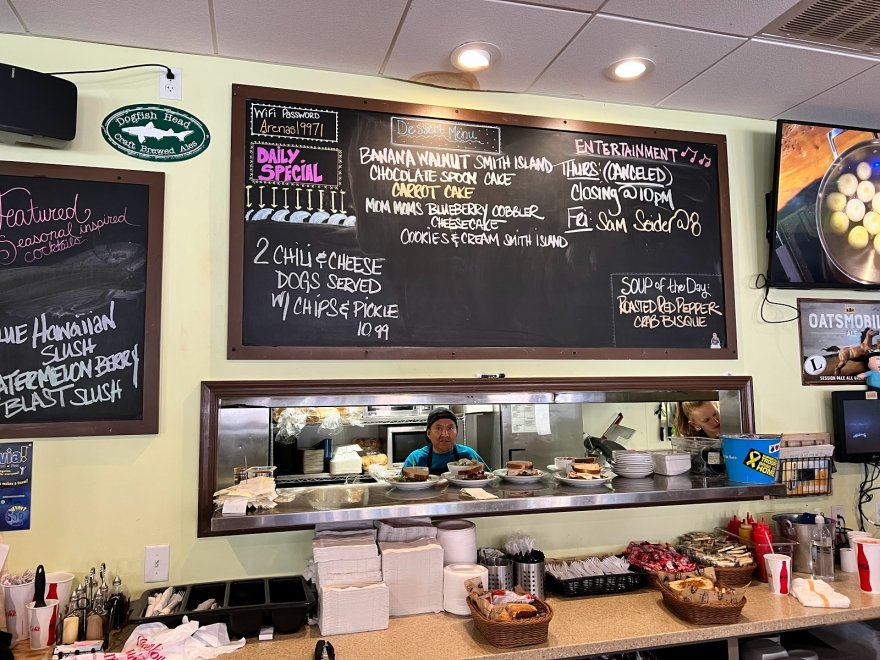 Dogfish Head
Craft Brewed Ales
Featured
Seasonal inspired
cocktails
Blue Hawaiian
Slush
Watermelon Berry
Blast Slush
WiFi Password
Arenas19971
DAILY
SPECIAL
2 CHILI & CHEESE
DOGS SERVED
W/ CHIPS & PICKLE
10.99
Dessert Menu
BANANA WALNUT SMITH ISLAND
CHOCOLATE SPOON CAKE
CARROT CAKE
MOM MOM'S BLUEBERRY COBBLER
CHEESECAKE
COOKIES & CREAM SMITH ISLAND
ENTERTAINMENT
THURS: (CANCELED)
CLOSING @ 10PM
Fri: Sam Seider @ 8
SOUP of the DAY:
ROASTED RED PEPPER
CRAB BISQUE
OATSMOBILE
ALE
SESSION PALE ALE